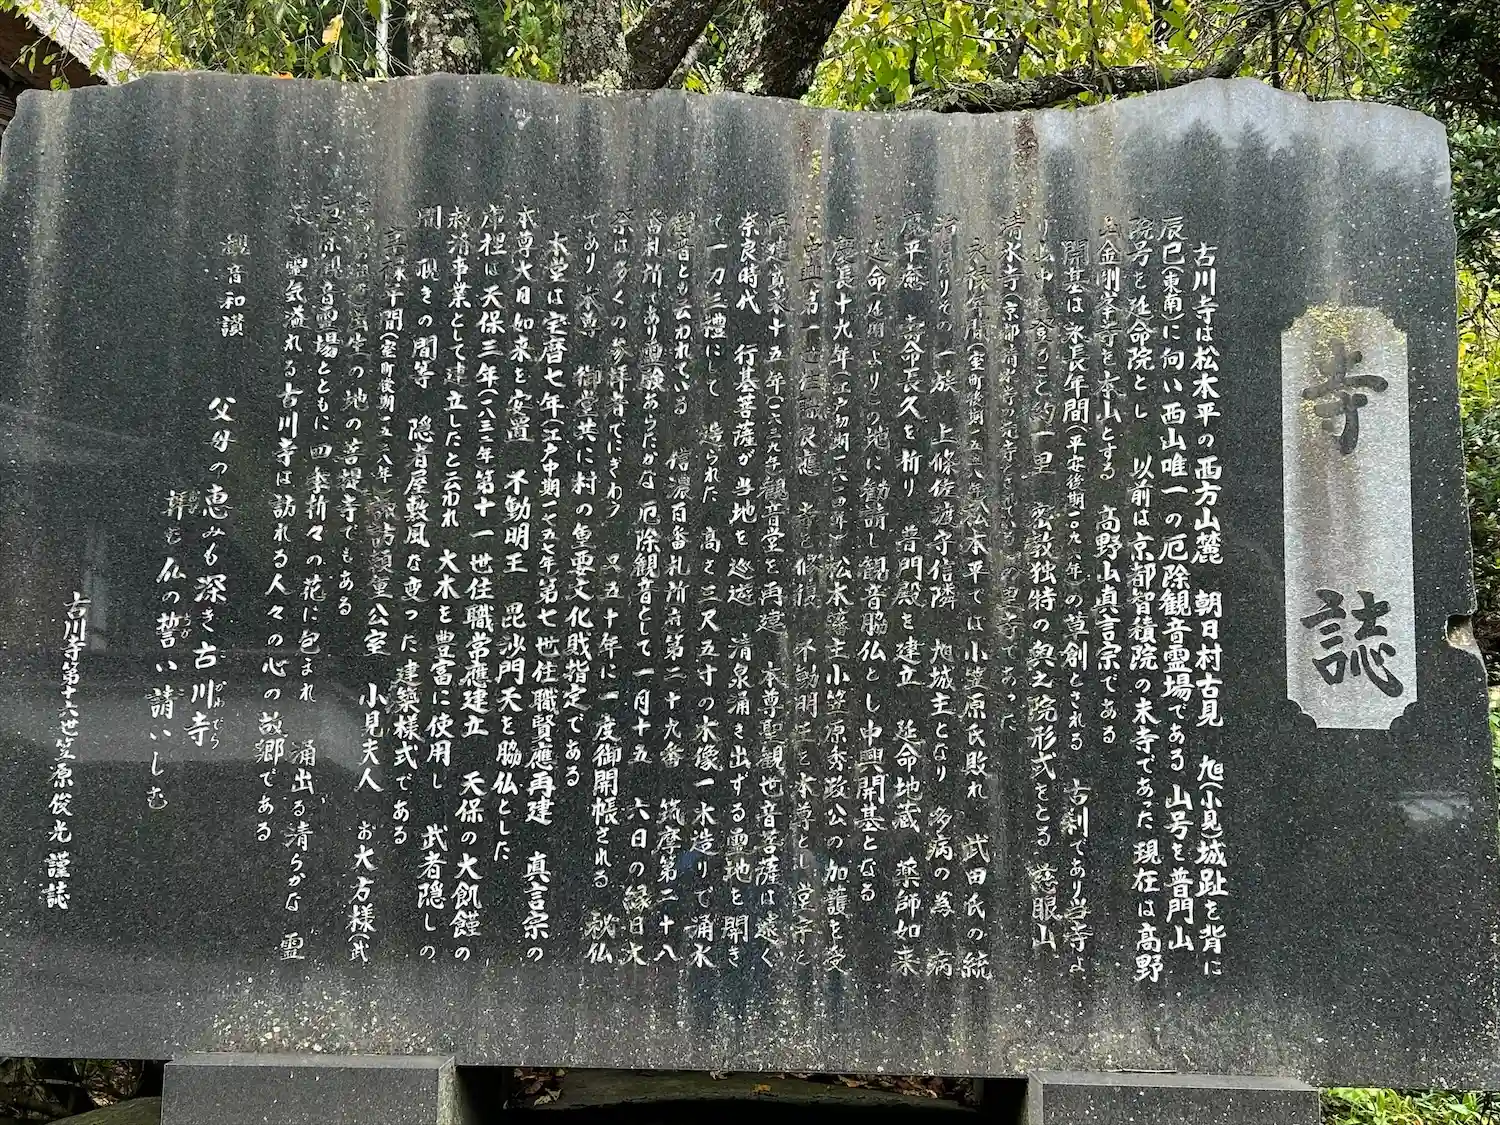 寺誌
古川寺は松本平の西方山麓 朝日村古見 旭(小見)城趾を背に
辰巳(東南)に向い西山唯一の厄除観音霊場である 山号を普門山
院号を延命院とし 以前は京都智積院の末寺であった現在は高野
山金剛峯寺を本山とする 高野山真言宗である
開基は永長年間(平安後期一〇九六年の草創とされる 古刹であり当寺よ
り山中 登ること約一里 密教独特の奥之院形式をとる 慈眼山
清水寺(京都清水寺の元寺
永禄年間(室町後期 松本平では小笠原氏敗れ 武田氏の統
治となりその一族 上條佐渡守信隣 旭城主となり 多病の為 病
魔平癒 寿命長久を祈り 普門殿を建立 延命地蔵 薬師如来
を延命 よりこの地に勧請し観音脇仏とし中興開基となる
慶長十九年(江戸初期一六一四年)松本藩主小笠原秀政公の加護を受
け中興第一世住職良應 寺を修復 不動明王を本尊とし堂宇を
再建寛永十五年(一六三九年観音堂を再建 本尊聖観世音菩薩は遠く
奈良時代 行基菩薩が当地を巡遊 清泉涌き出ずる霊地を開き
て一刀三禮にて 造られた 高さ三尺五寸の木像一木造りで涌水
観音とも云われている 信濃百番札所府第二十九番 筑摩第二十八
番札所であり霊験あらたかな 厄除観音として一月十五 六日の縁日大
祭は多くの参拝者でにぎわう 又五十年に一度御開帳される 秘仏
であり 本尊 御堂共に村の重要文化財指定である
本堂は宝暦七年(江戸中期一七五七年第七世住職賢應再建 真言宗の
本尊大日如来を安置 不動明王 毘沙門天を脇仏とした
庫裡は天保三年(一八三二年第十一世住職常應建立 天保の大飢饉の
救済事業として建立したと云われ 大木を豊富に使用し 武者隠しの
間 覗きの間等 隠者屋敷風な変った建築様式である
享禄年間(室町後期一五二八年 諏訪頼重公室 小見夫人 お大方様(武
生の地の菩提寺でもある
厄除観音霊場とともに 四季折々の花に包まれ 涌出る清らかな 霊
泉 霊気溢れる古川寺は訪れる人々の心の故郷である
観音和讃
父母の恵みも深き古川寺
拝む仏の誓い請いしむ
古川寺第十六世笠原俊光 謹誌